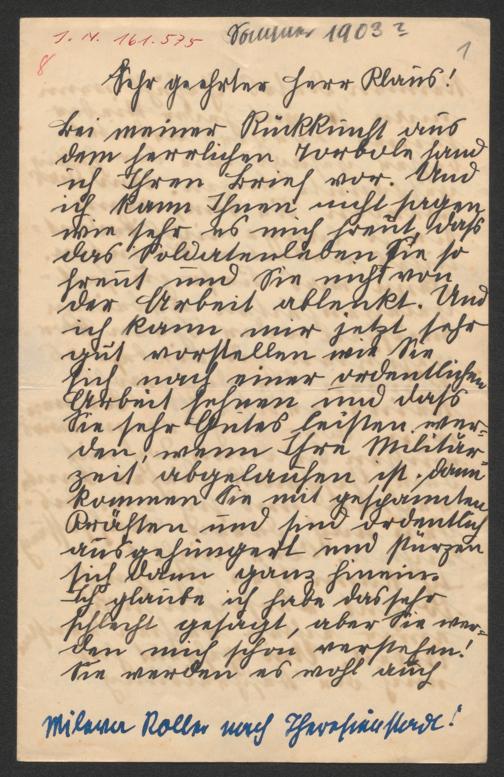 J. N. 161.575
Sommer 1903?
1
8
Sehr geehrter Herr Klaus!
Bei meiner Rückkunft aus
dem herrlichen Torbole fand
ich Ihren Brief vor. Und
ich kann Ihnen nicht sagen
wie sehr es mich freut, daß
das Soldatenleben Sie so
freut und Sie nicht von
der Arbeit ablenkt. Und
ich kann mir jetzt sehr
gut vorstellen wie Sie
sich nach einer ordentlichen
Arbeit sehnen und daß
Sie sehr Gutes leisten wer-
den, wenn Ihre Militär-
zeit abgelaufen ist. dann
kommen Sie mit gespannten
Kräften und sind ordentlich
ausgehungert und stürzen
sich dann ganz hinein.
Ich glaube ich habe das sehr
schlecht gesagt, aber Sie wer-
den mich schon verstehen!
Sie werden es wohl auch
Milewa Roller nach Theresienstadt!